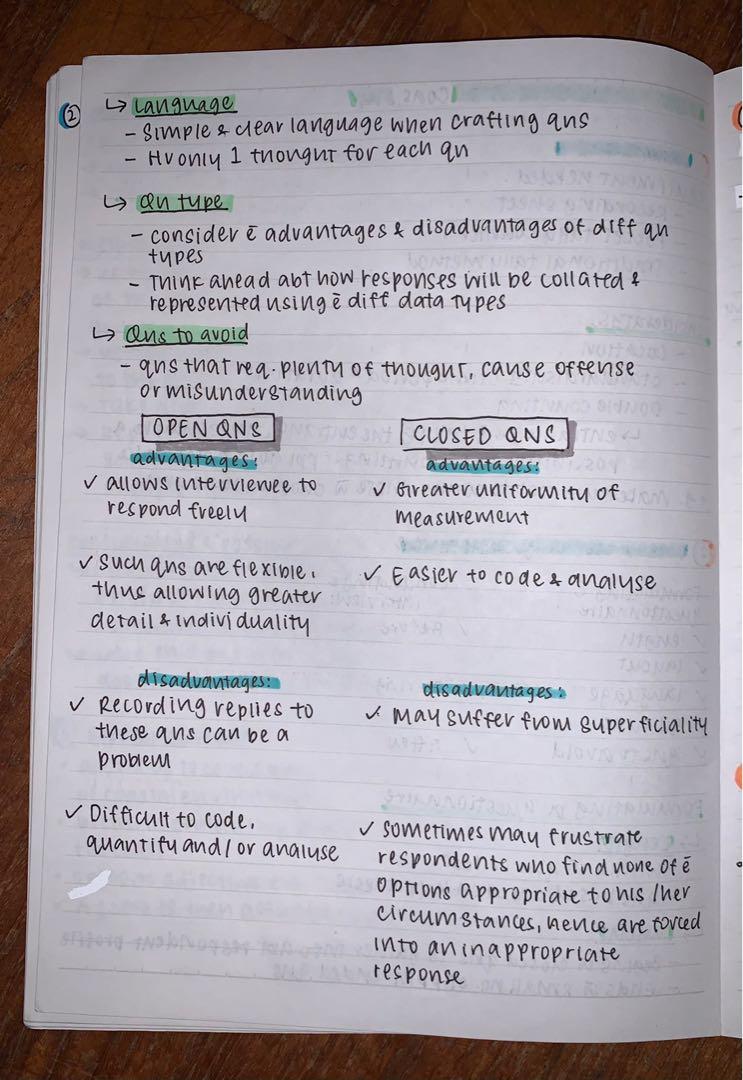 2
↳ Language
- Simple & clear language when crafting qns
- Hv only 1 thought for each qn
↳ Qn type
- consider ē advantages & disadvantages of diff qn
types
- Think ahead abt how responses will be collated &
represented using ē diff data types
↳ Qns to avoid
- qns that req. plenty of thought, cause offense
or misunderstanding
OPEN QNS
advantages:
✓ allows interviewee to
respond freely
✓ Such qns are flexible,
thus allowing greater
detail & individuality
disadvantages:
✓ Recording replies to
these qns can be a
problem
✓ Difficult to code,
quantify and/or analyse
CLOSED QNS
advantages:
✓ Greater uniformity of
measurement
✓ Easier to code & analyse
disadvantages:
✓ May suffer from superficiality
✓ sometimes may frustrate
respondents who find none of ē
options appropriate to his/her
circumstances, hence are forced
into an inappropriate
response